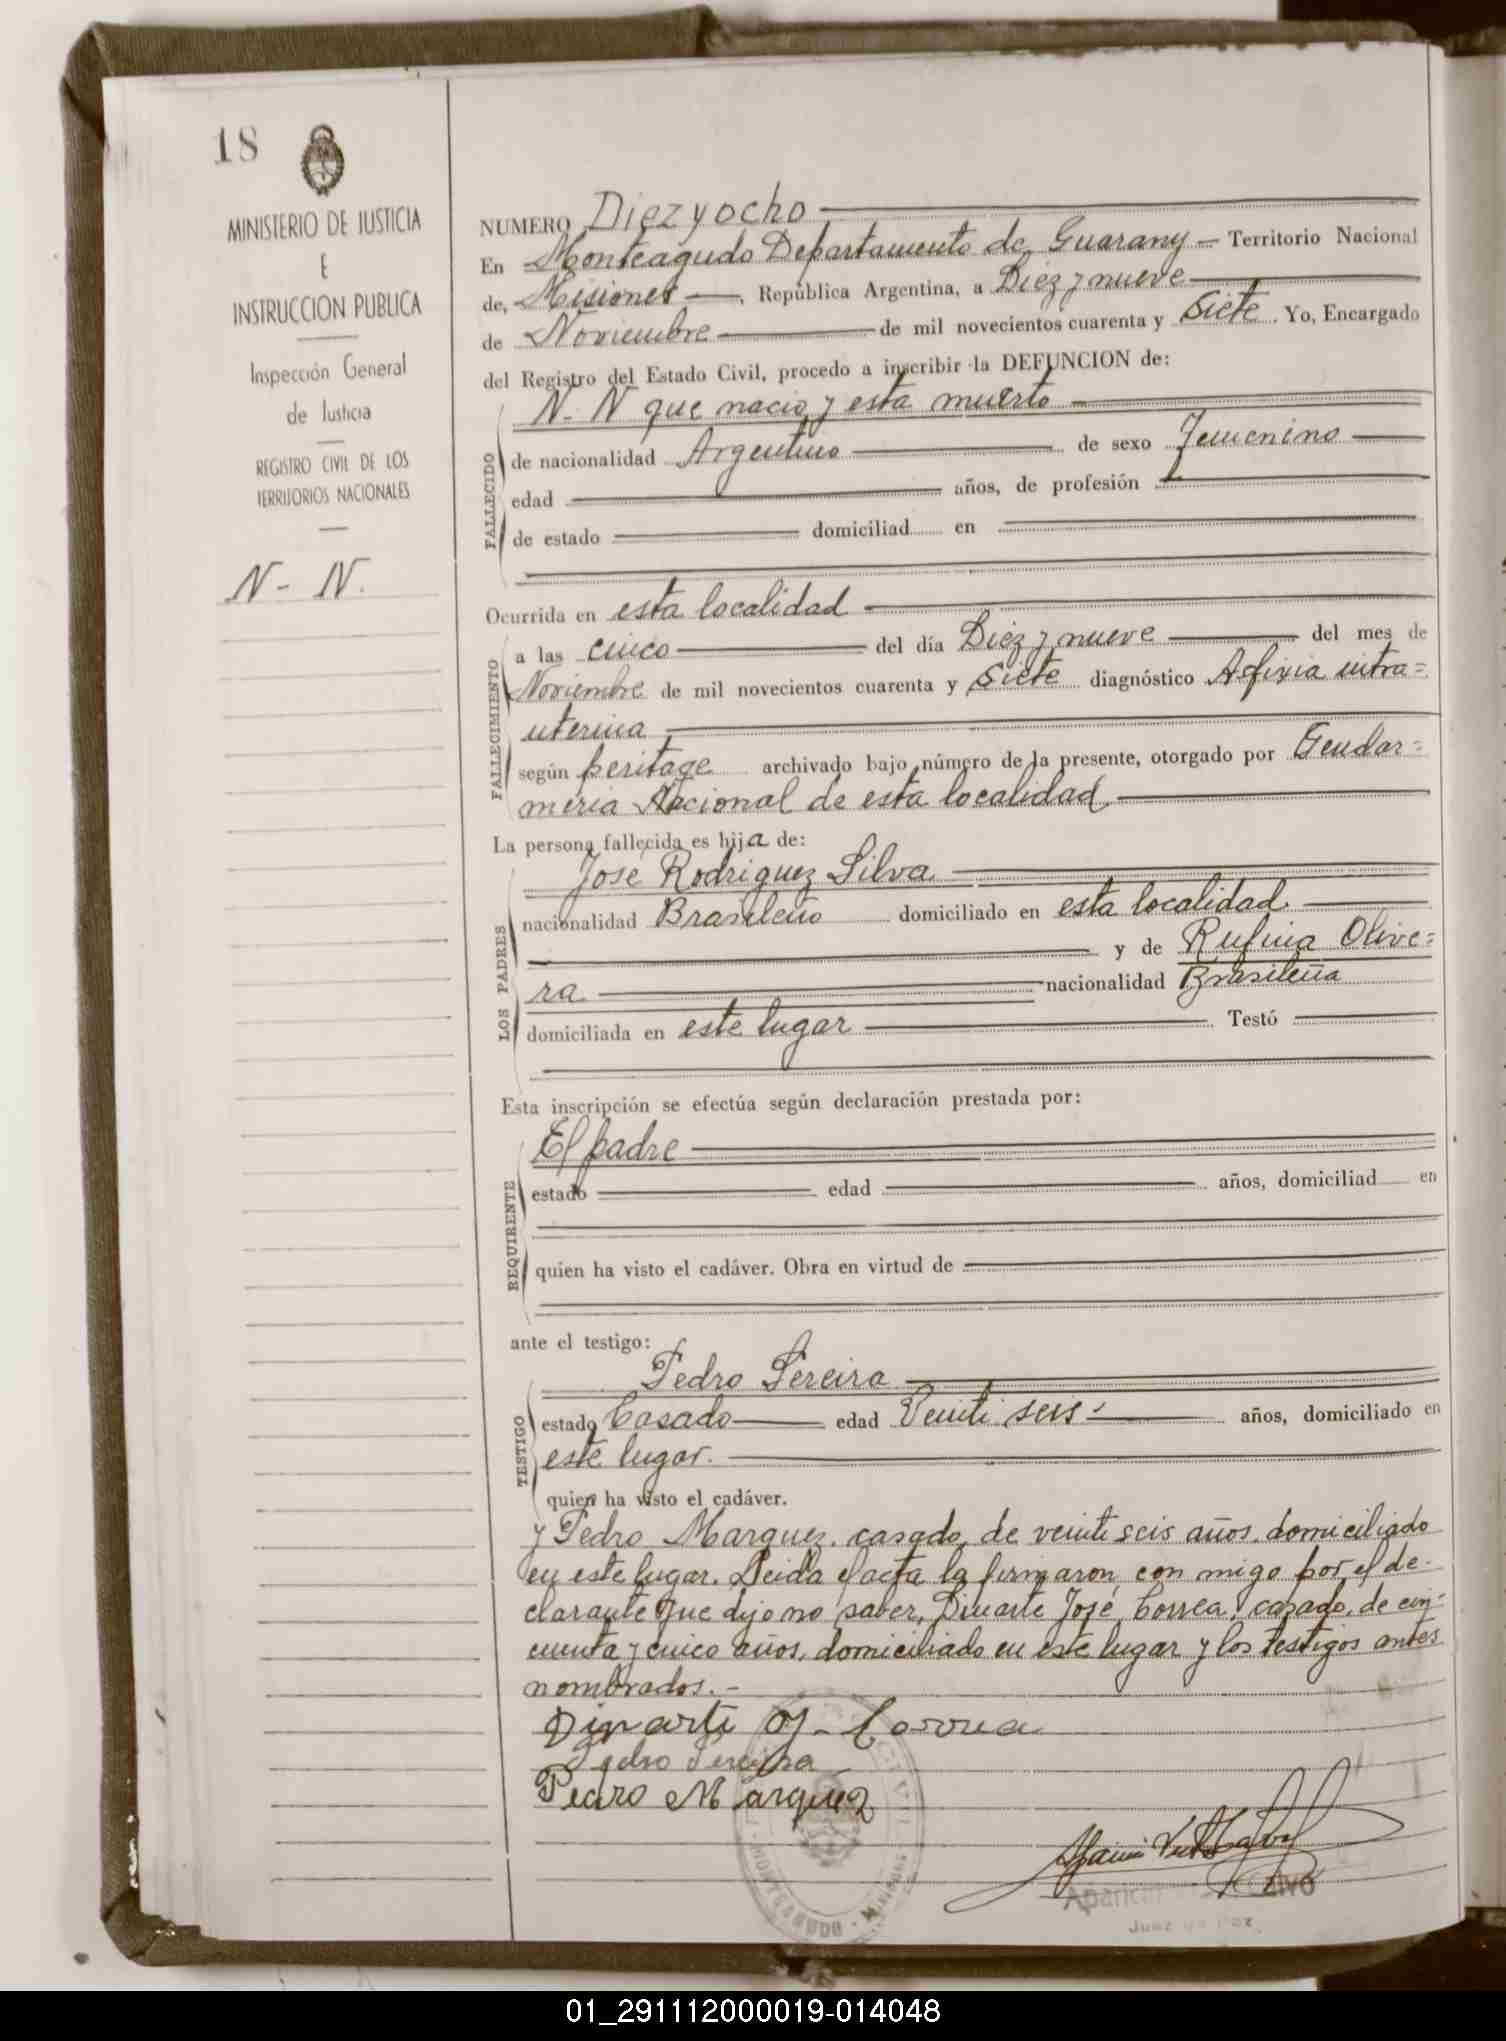 18
MINISTERIO DE JUSTICIA
E
INSTRUCCION PUBLICA
Inspección General
de Justicia
REGISTRO CIVIL DE LOS
TERRITORIOS NACIONALES
N - N.
NUMERO Diez y ocho
En Monteagudo Departamento de Guarany - Territorio Nacional
de, Misiones, República Argentina, a Diez y nueve
de Noviembre de mil novecientos cuarenta y Siete. Yo, Encargado
del Registro del Estado Civil, procedo a inscribir la DEFUNCION de:
N. N que nacio y esta muerto
FALLECIDO
de nacionalidad Argentino de sexo Femenino
edad años, de profesión
de estado domiciliad en
Ocurrida en esta localidad
a las cinco del día Diez y nueve del mes de
FALLECIMIENTO
Noviembre de mil novecientos cuarenta y Siete diagnóstico Asfixia intra=
uterina
según peritage archivado bajo número de la presente, otorgado por Gendar=
meria Nacional de esta localidad
La persona fallecida es hija de:
José Rodriguez Silva
LOS PADRES
nacionalidad Brasileño domiciliado en esta localidad.
y de Rufina Olive=
ra nacionalidad Brasileña
domiciliada en este lugar Testó
Esta inscripción se efectúa según declaración prestada por:
El padre
REQUIRENTE
estado edad años, domiciliad en
quien ha visto el cadáver. Obra en virtud de
ante el testigo:
Pedro Pereira
TESTIGO
estado Casado edad Veinti seis años, domiciliado en
este lugar.
quien ha visto el cadáver.
y Pedro Marquez, casado, de veinti seis años, domiciliado
en este lugar. Leida el acta la firmaron con migo por el de-
clarante que dijo no saber, Diuarte José Correa, casado, de cin=
cuenta y cinco años, domiciliado en este lugar y los testigos antes
nombrados.-
Diuarte J. Correa
Pedro Pereira
Pedro Marquez
MONTEAGUDO - Misiones
Juez de Paz
01_291112000019-014048